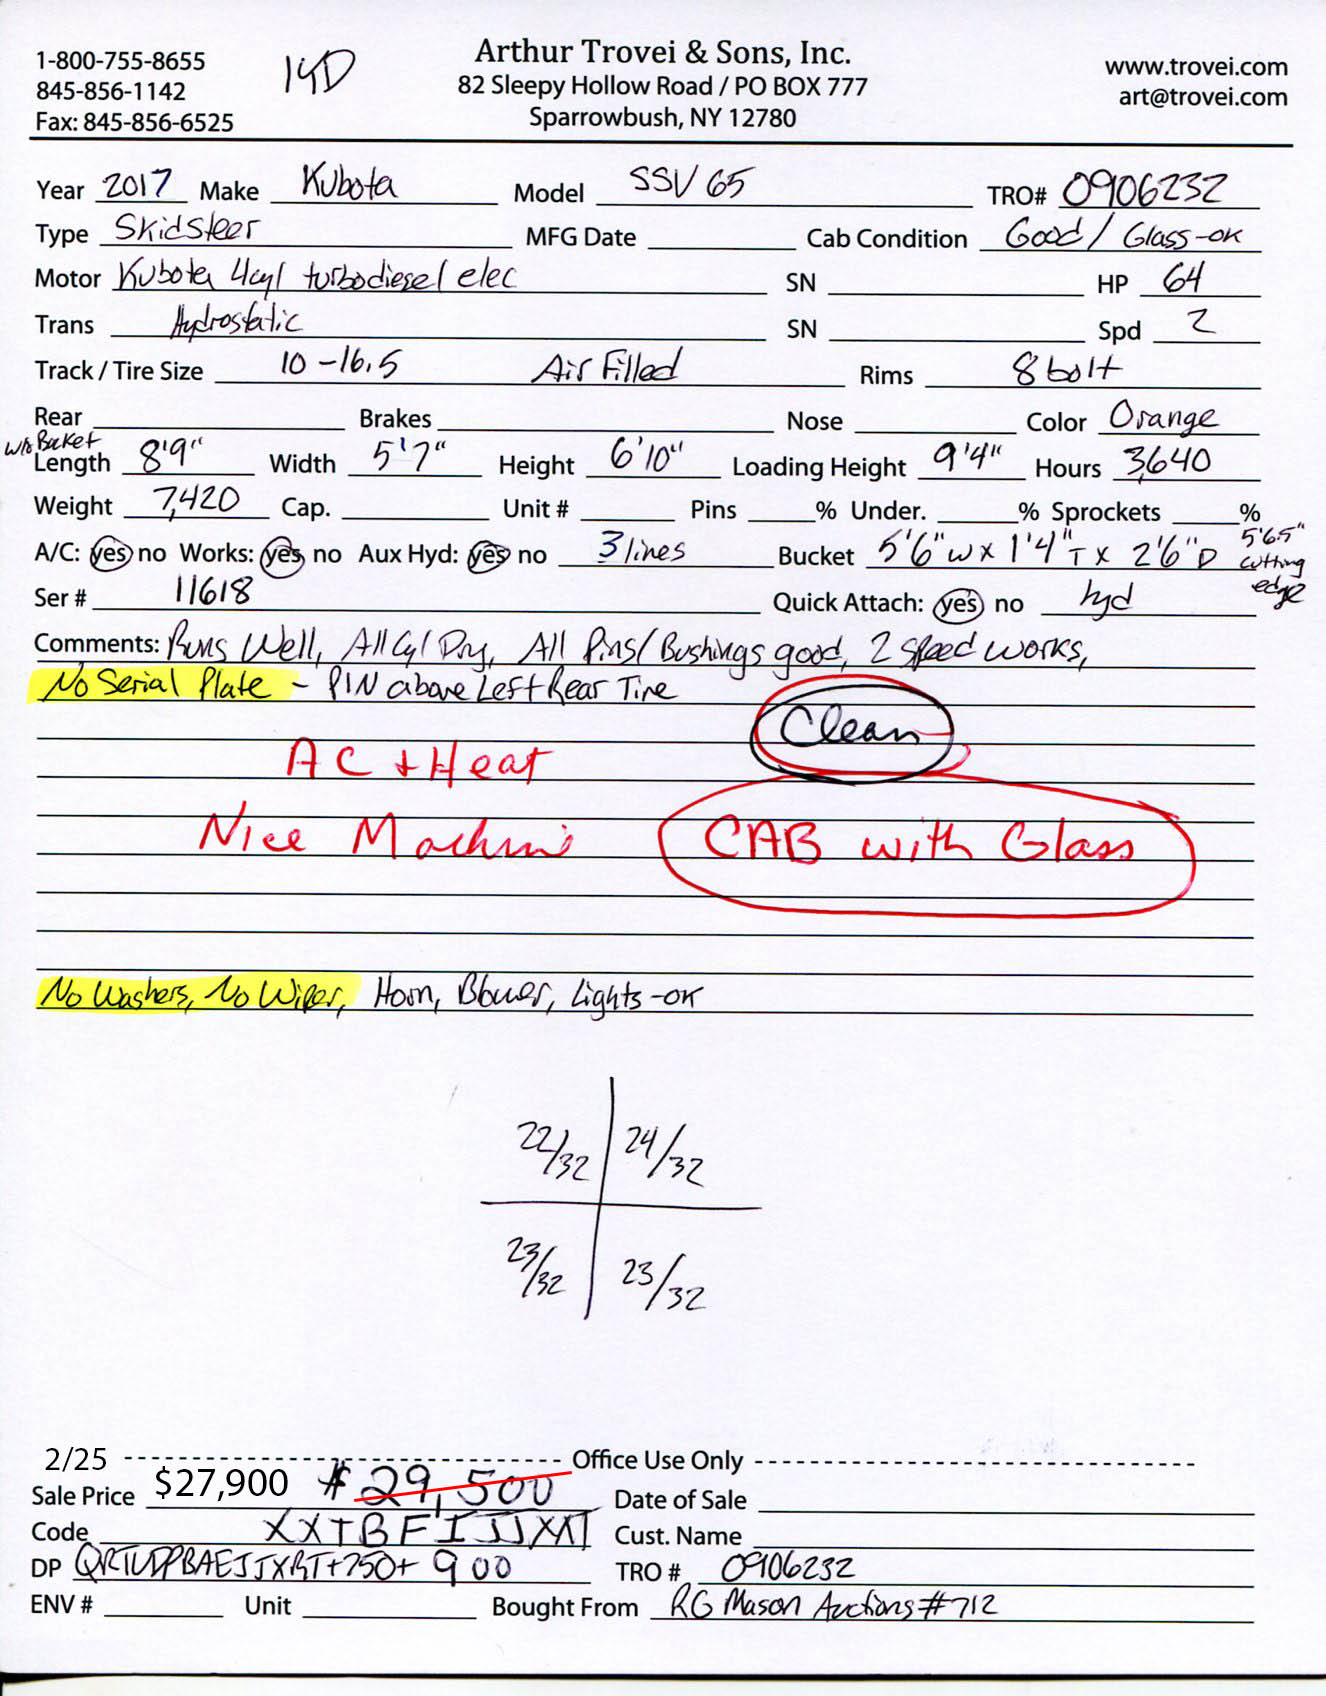 1-800-755-8655
845-856-1142
Fax: 845-856-6525
14D
Arthur Trovei & Sons, Inc.
82 Sleepy Hollow Road / PO BOX 777
Sparrowbush, NY 12780
www.trovei.com
art@trovei.com
Year 2017 Make Kubota Model SSV65 TRO# 0906232
Type Skidsteer MFG Date Cab Condition Good / Glass-ok
Motor Kubota 4cyl turbodiesel elec SN HP 64
Trans Hydrostatic SN Spd 2
Track / Tire Size 10-16.5 Air Filled Rims 8 bolt
Rear Brakes Nose Color Orange
w/o Bucket
Length 8'9" Width 5'7" Height 6'10" Loading Height 9'4" Hours 3,640
Weight 7,420 Cap. Unit # Pins % Under. % Sprockets %
A/C: yes no Works: yes no Aux Hyd: yes no 3 lines Bucket 5'6"W x 1'4"T x 2'6"D 5'6.5" cutting edge
Ser # 11618 Quick Attach: yes no hyd
Comments: Runs Well, All Cyl Dry, All Pins/Bushings good, 2 speed works,
No Serial Plate - PIN above Left Rear Tire
Clean
AC + Heat
Nice Machine CAB with Glass
No Washers, No Wiper, Horn, Blower, Lights-ok
22/32 24/32
23/32 23/32
2/25 Office Use Only
Sale Price $27,900 $29,500 Date of Sale
Code XXTBFIJJXXT Cust. Name
DP QRTUDPBAEJJXRT+750+ 900 TRO # 0906232
ENV # Unit Bought From RG Mason Auctions #712